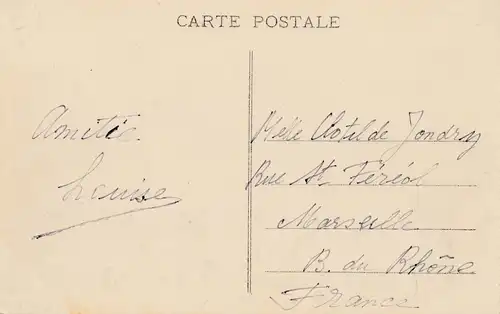 CARTE POSTALE
Amitié.
Louise
Melle Clotilde Jondry
Rue St. Féréol
Marseille
B. du Rhône
France